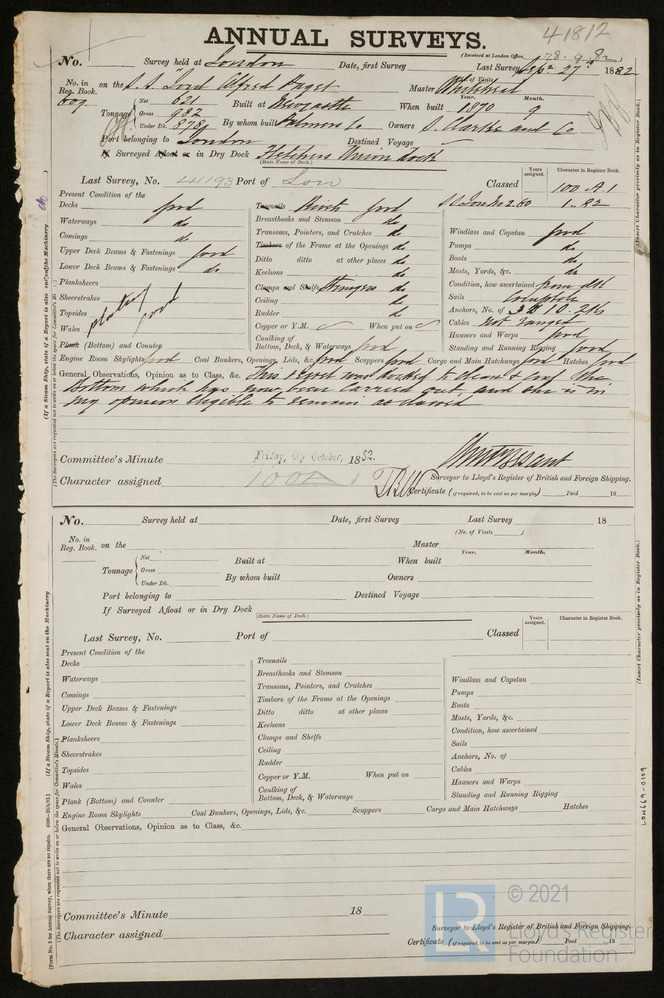 41812
ANNUAL SURVEYS.
(Received at London Office, 28.9.82)
No. Survey held at London Date, first Survey Last Survey Sept 27th 1882
No. in Reg. Book. on the S.S. "Lord Alfred Paget" Master Whitehead
609 Tonnage Net 621 Built at Newcastle When built Year. 1870 Month. 9
Gross 982
Under Dk. 878 By whom built Palmers Co Owners S. Clarke and Co
Port belonging to London Destined Voyage
If Surveyed Afloat or in Dry Dock Fletchers Union Dock
(State Name of Dock.)
Last Survey, No. 41193 Port of Lon Classed Years assigned. Character in Register Book.
100 A.1
1.82
Present Condition of the
Decks good
Waterways do
Comings do
Upper Deck Beams & Fastenings good
Lower Deck Beams & Fastenings do
Planksheers
Sheerstrakes
Topsides
Wales
plating good
Plank (Bottom) and Counter
Treenails Rivets good
Breasthooks and Stemson do
Transoms, Pointers, and Crutches do
Timbers of the Frame at the Openings do
Ditto ditto at other places do
Keelsons do
Clamps and Shelfs Stringers do
Ceiling do
Rudder do
Copper or Y.M. When put on
Caulking of
Bottom, Deck, & Waterways good
Windlass and Capstan good
Pumps do
Boats do
Masts, Yards, &c. do
Condition, how ascertained from dk
Sails Complete
Anchors, No. of 3 B 1 S. 2 K
Cables Not ranged
Hawsers and Warps good
Standing and Running Rigging good
Engine Room Skylights good Coal Bunkers, Openings, Lids, &c. good Scuppers good Cargo and Main Hatchways good Hatches good
General Observations, Opinion as to Class, &c. This vessel was docked to clean & coat the
bottom which has now been carried out, and she is in
my opinion eligible to remain as classed
Committee's Minute Friday, 6th October, 1882.
Character assigned 100A 1
Surveyor to Lloyd's Register of British and Foreign Shipping.
Certificate (if required, to be sent as per margin) Paid 18
No. Survey held at Date, first Survey Last Survey 18
(No. of Visits )
No. in Reg. Book. on the Master
Tonnage Net Built at When built Year. Month.
Gross
Under Dk. By whom built Owners
Port belonging to Destined Voyage
If Surveyed Afloat or in Dry Dock
(State Name of Dock.)
Last Survey, No. Port of Classed Years assigned. Character in Register Book.
Present Condition of the
Decks
Waterways
Comings
Upper Deck Beams & Fastenings
Lower Deck Beams & Fastenings
Planksheers
Sheerstrakes
Topsides
Wales
Plank (Bottom) and Counter
Treenails
Breasthooks and Stemson
Transoms, Pointers, and Crutches
Timbers of the Frame at the Openings
Ditto ditto at other places
Keelsons
Clamps and Shelfs
Ceiling
Rudder
Copper or Y.M. When put on
Caulking of
Bottom, Deck, & Waterways
Windlass and Capstan
Pumps
Boats
Masts, Yards, &c.
Condition, how ascertained
Sails
Anchors, No. of
Cables
Hawsers and Warps
Standing and Running Rigging
Engine Room Skylights Coal Bunkers, Openings, Lids, &c. Scuppers Cargo and Main Hatchways Hatches
General Observations, Opinion as to Class, &c.
Committee's Minute 18
Character assigned
Surveyor to Lloyd's Register of British and Foreign Shipping.
Certificate (if required, to be sent as per margin) Paid 18
LON669-0109
LR © 2021
Lloyd's Register
Foundation